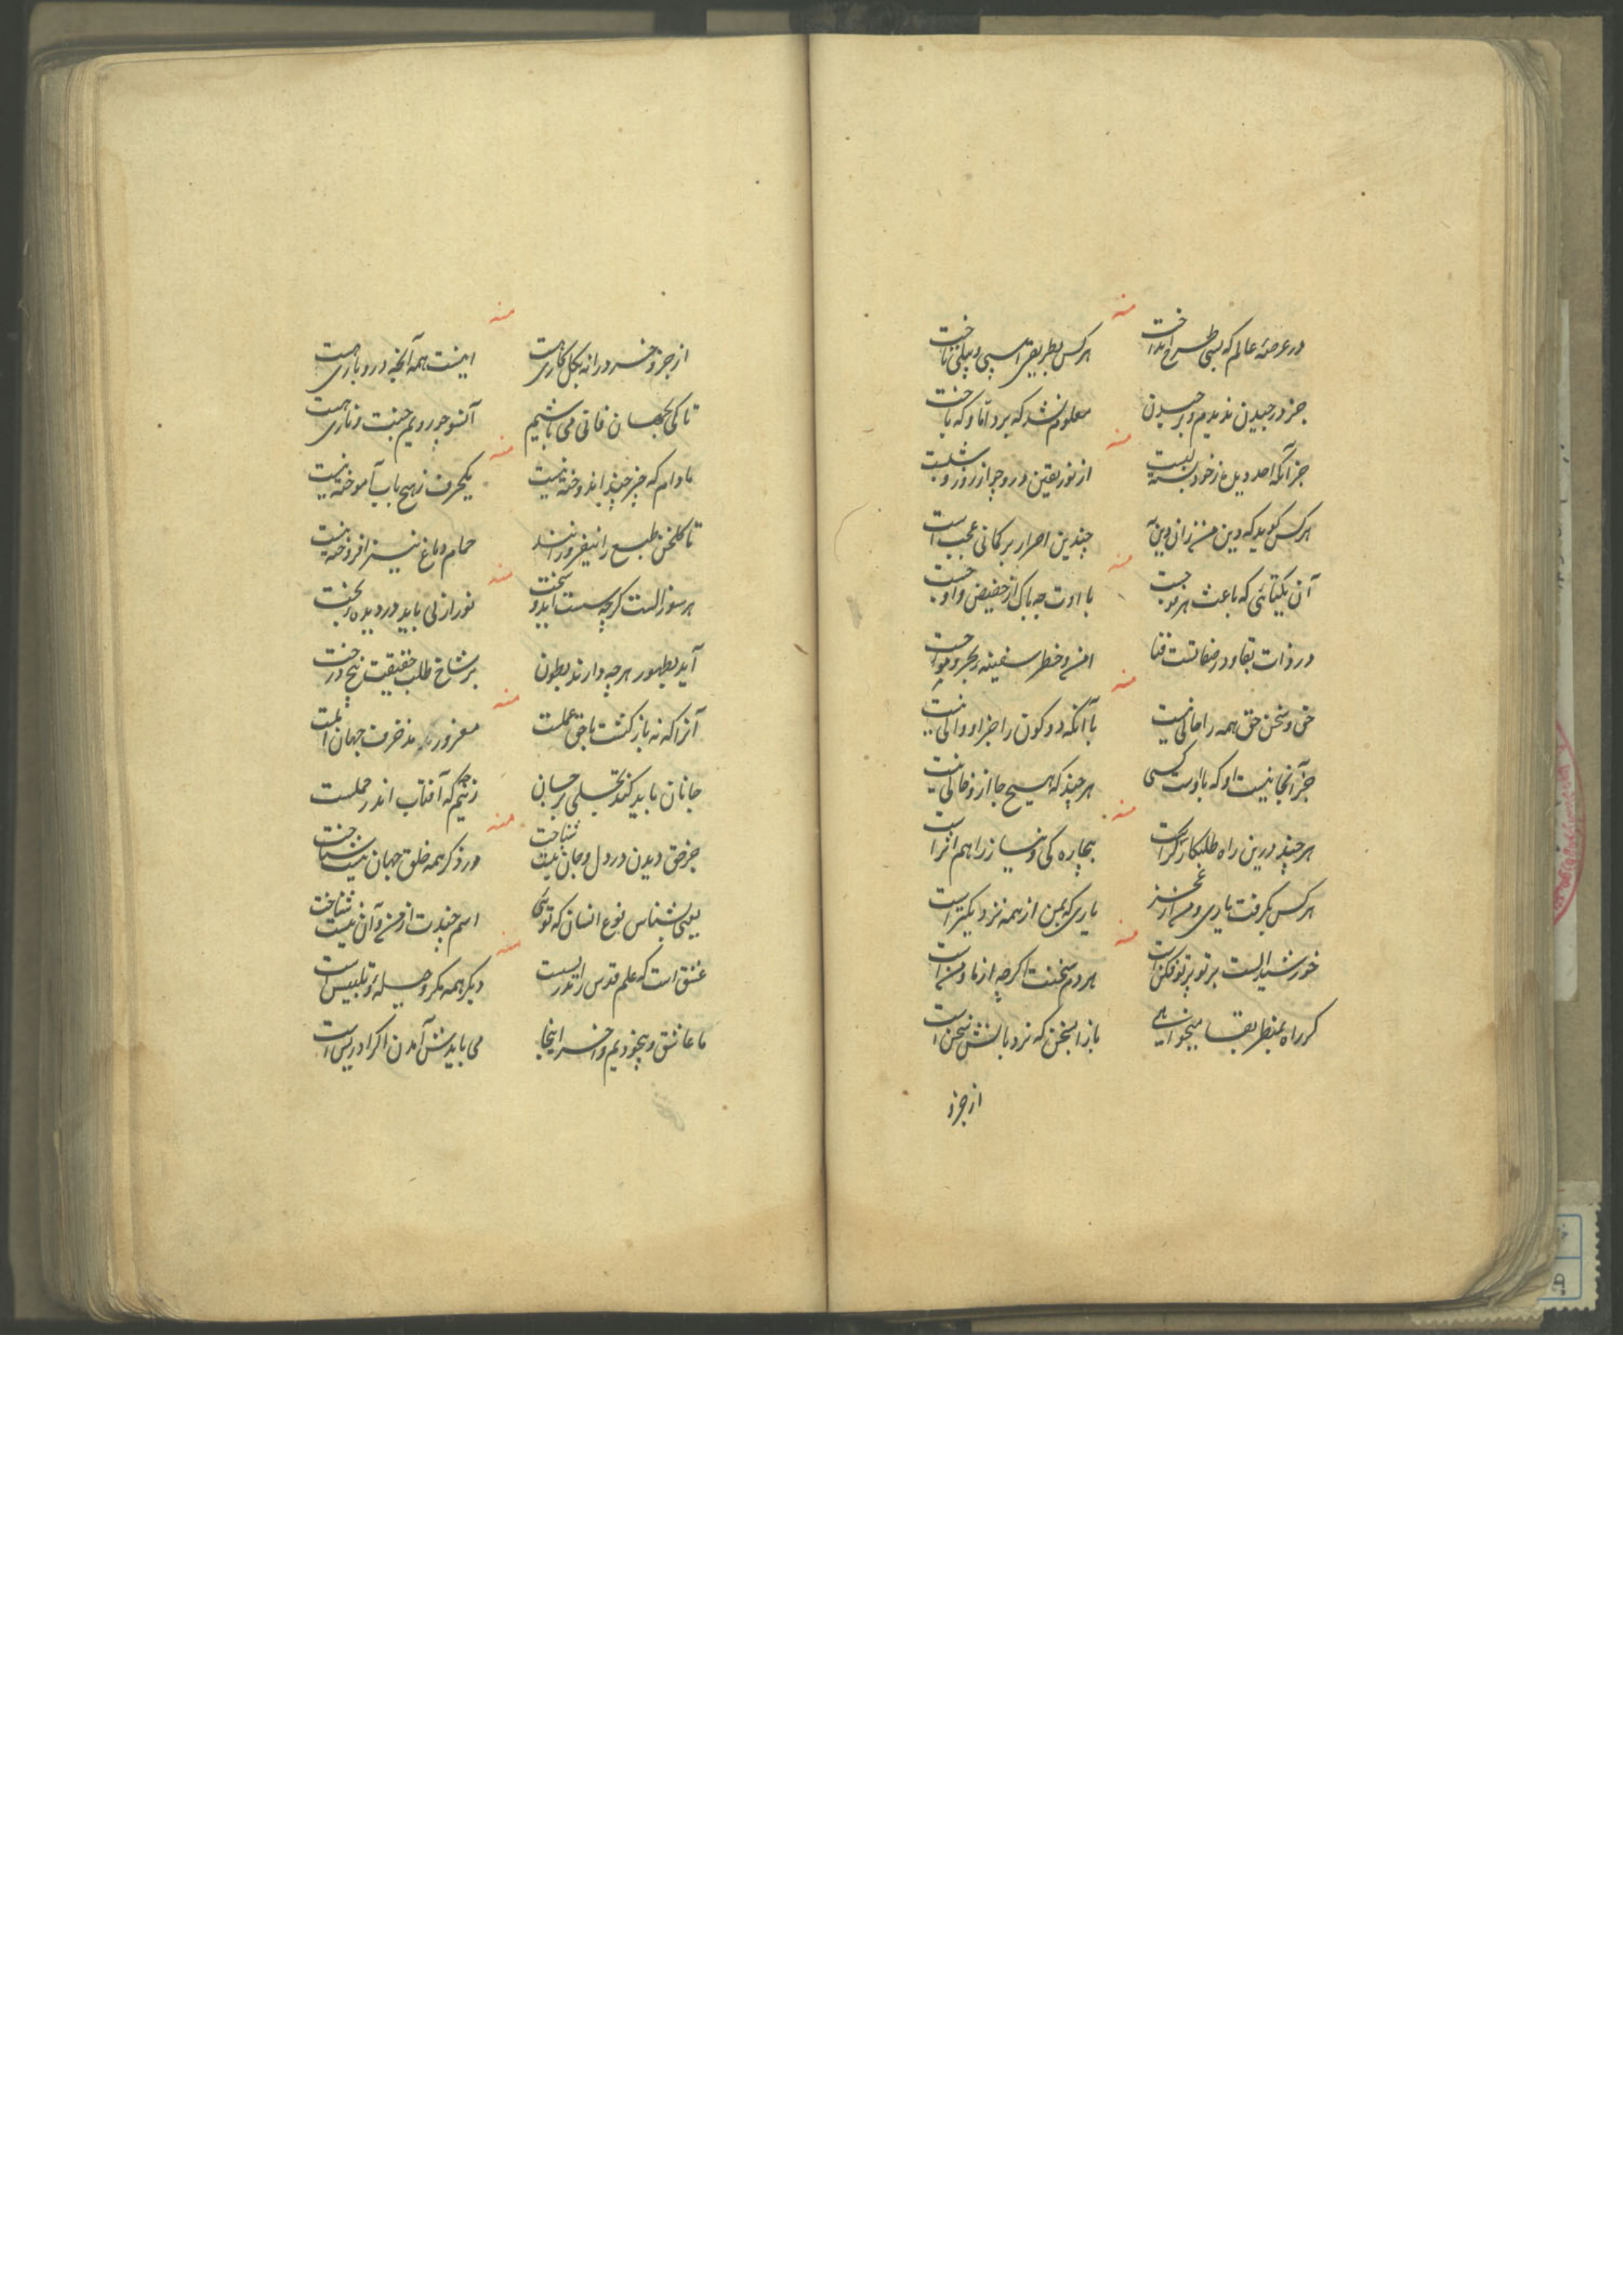 منه
در عرصهٔ عالم که بسی طرح انداخت هرکس بطریقی اسپی و پیلی تاخت
جز در چیدن ندیدم و برچیدن معلوم نشد که برد آنا و که باخت
منه
جز آنکه احد دیل ز خود بست از نور یقین در و چو از روز و شبست
هرکس گوید که دین من زان دین به چندین اصرار بر کمانی عجب است
منه
آن یکتائی که باعث هر موجست با اوت چه باک از حضیض و اوجست
در ذات بقا و در صفاتست فنا امن و خطر سفینه در بحر و موجست
منه
حق و سخن حق همه را حالی نیست با آنکه دو کون را جز او والی نیست
جز آنجا نیست او که با اوست کسی هر چند که هیچ جا ازو خالی نیست
منه
هر چند درین راه طلبکار تراست بیچاره کی و نیاز را هم اثراست
هرکس بگرفت یاری و من از عجز یاری که بمن از همه نزدیکتر است
منه
خورشید الست بر تو پرتو فکن است هر دم سخنت اگرچه از ما و من است
گر راه بمنظر بقا میخواهی باز اسخن که نردبانش سخن است
از جزو
منه
از جزو خسرو را نه بکل کاری هست اینست همه آنچه درو باری هست
تا کی بجهان فانی می باشیم آنسو چو رویم جنت و ناری هست
منه
مادام که جز چند اندوخته نیست یکحرف ز هیچ باب آموخته نیست
تا گلخن طبع را نیفروزانند حمام دماغ نیز افروخته نیست
منه
هر سوز الست گرچه سست آید و سخت نور ازلی باید در دیده بخت
آید بظهور هر چه دارند بطون بر شاخ طلب حقیقت بیخ درخت
منه
آنرا که نه بازگشت با حق عملست مغرور مزخرف جهان املست
جانان باید کند تجلی بر جان زینم که آفتاب اندر حملست
منه
جز حق دیدن در دل و جان نیت شناخت در ذکر همه خلق جهان نیت شناخت
یعنی بشناس نوع انسان که توئی اسم چندت از من و آن نیت شناخت
منه
عشق است که علم قدس را تدریست دیگر همه مکر و حیله و تلبیس است
ما عاشق و بیخودیم و اخسر اینجا می باید پیش آمدن اگر ادریس است